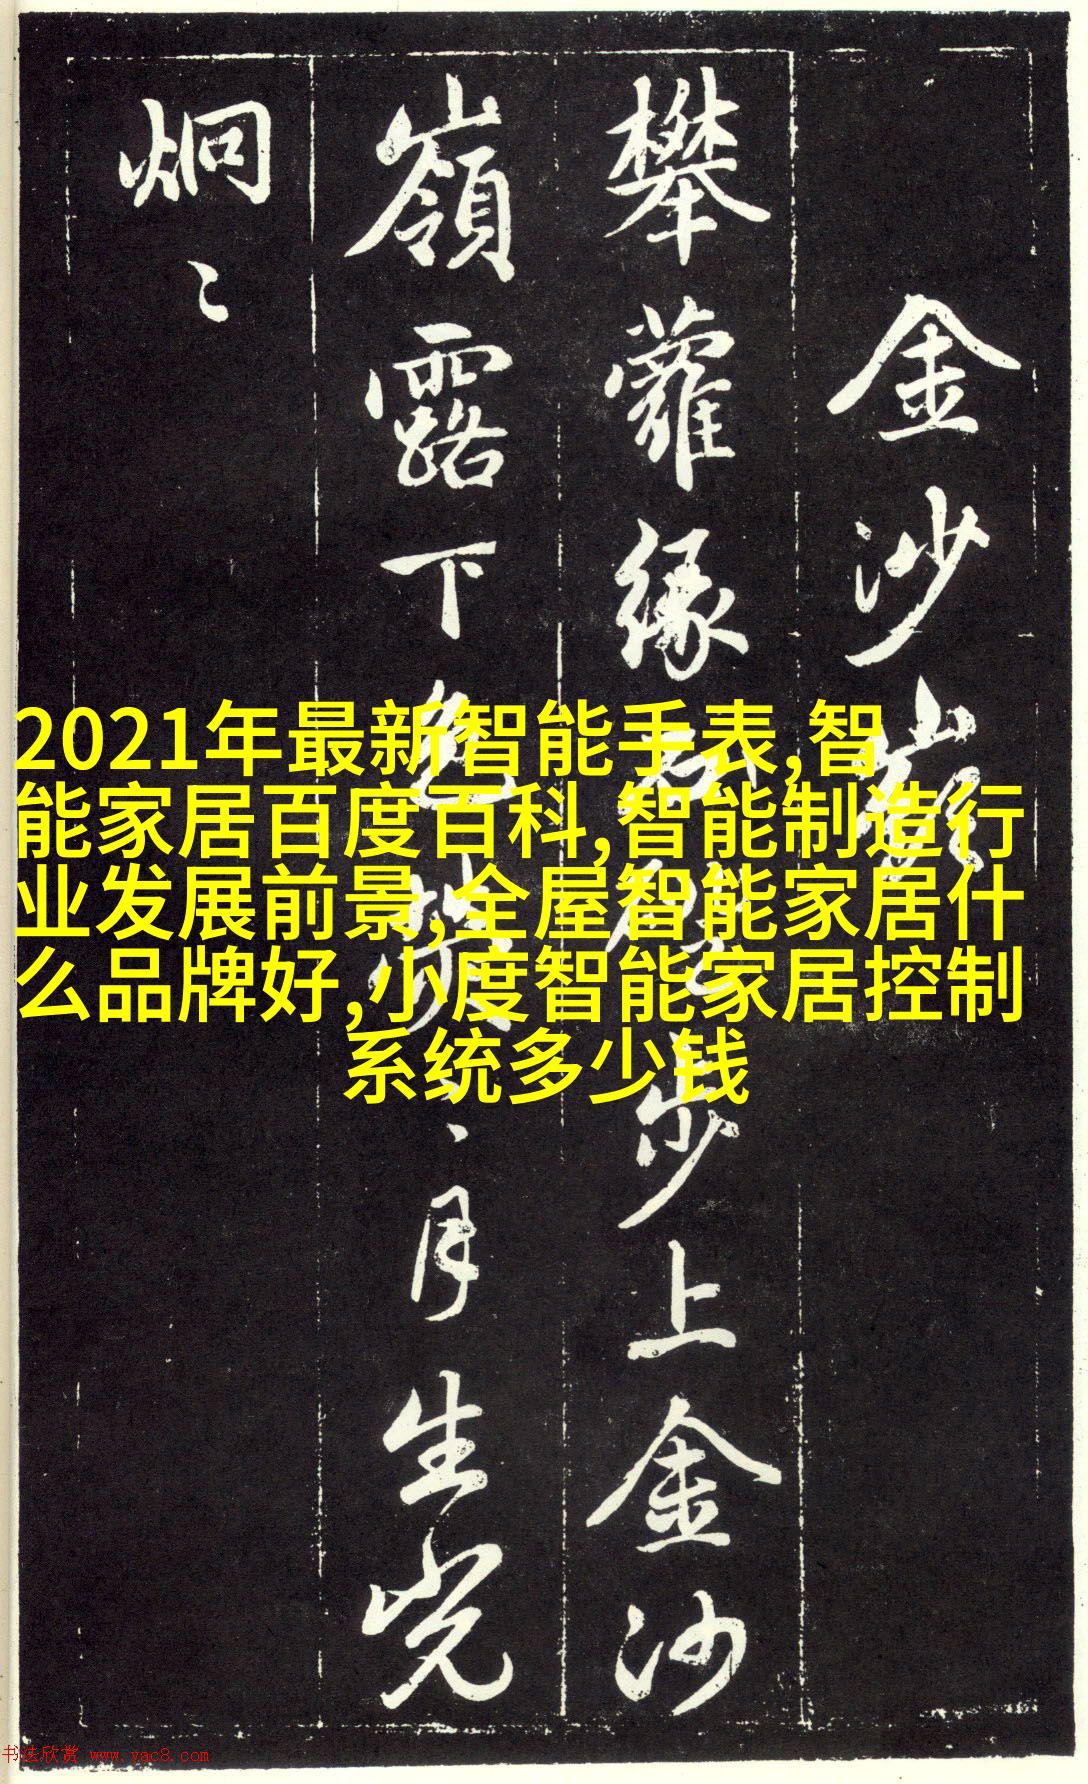 金沙嶺
攀蘿緣步上金沙
嶺露下月生光
炯〻
2021年最新智能手表,智
能家居百度百科,智能制造行
业发展前景,全屋智能家居什
么品牌好,小度智能家居控制
系统多少钱
书法欣赏 www.yac8.com